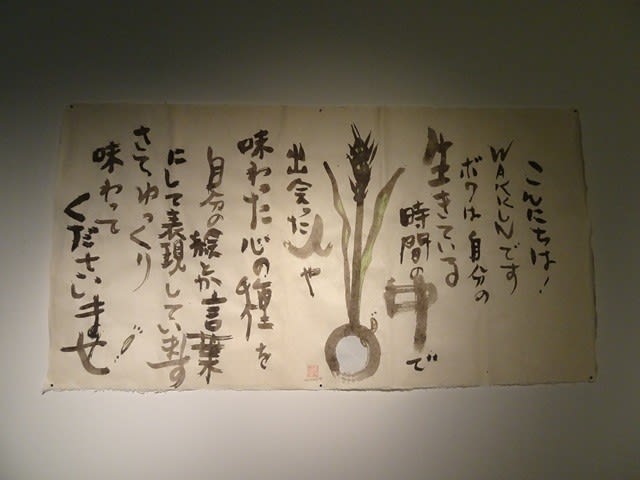 こんにちは!
WAKKUNです
ボクは自分の
生きている
時間の中で
出会った人や
味わった心の種を
自分の絵とか言葉
にして表現しています
さてゆっくり
味わって
くださいませ!!